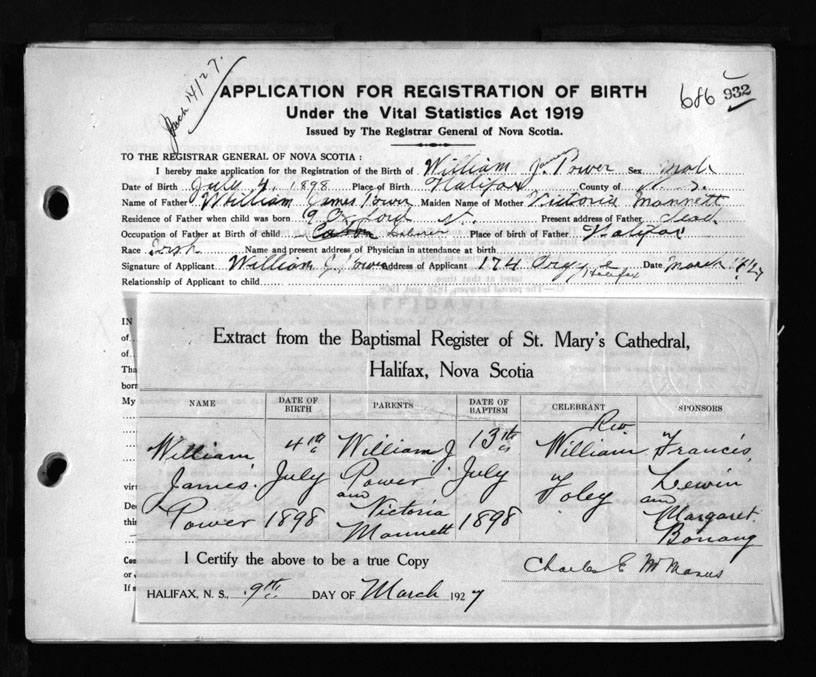 March 14/27.
686 932
APPLICATION FOR REGISTRATION OF BIRTH
Under the Vital Statistics Act 1919
Issued by The Registrar General of Nova Scotia.
TO THE REGISTRAR GENERAL OF NOVA SCOTIA:
I hereby make application for the Registration of the Birth of William James Power Sex Male
Date of Birth July 4, 1898 Place of Birth Halifax County of N. S.
Name of Father William James Power Maiden Name of Mother Victoria Mannett
Residence of Father when child was born Present address of Father Dead
Occupation of Father at Birth of child Place of birth of Father Halifax
Race Irish Name and present address of Physician in attendance at birth
Signature of Applicant William J Power Address of Applicant 174 Halifax Date March
Relationship of Applicant to child
AFFIDAVIT
IN
of
of
Tha
born
My
virt
Dec
this
Con
or
If s
Extract from the Baptismal Register of St. Mary's Cathedral,
Halifax, Nova Scotia
NAME DATE OF BIRTH PARENTS DATE OF BAPTISM CELEBRANT SPONSORS
William 4th William J. 13th Rev William Francis
James July Power July Foley Lewin
and and
Power 1898 Victoria 1898 Margaret
Mannett Bonang
I Certify the above to be a true Copy
Charles E McManus
HALIFAX, N. S., 9th DAY OF March 1927